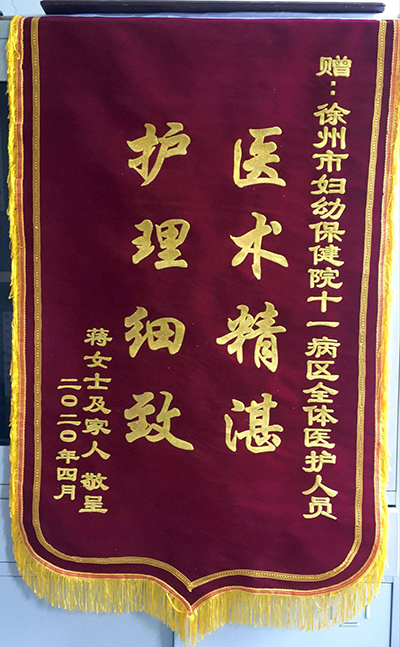 赠：徐州市妇幼保健院十一病区全体医护人员
医术精湛
护理细致
蒋女士及家人 敬呈
二〇二〇年四月